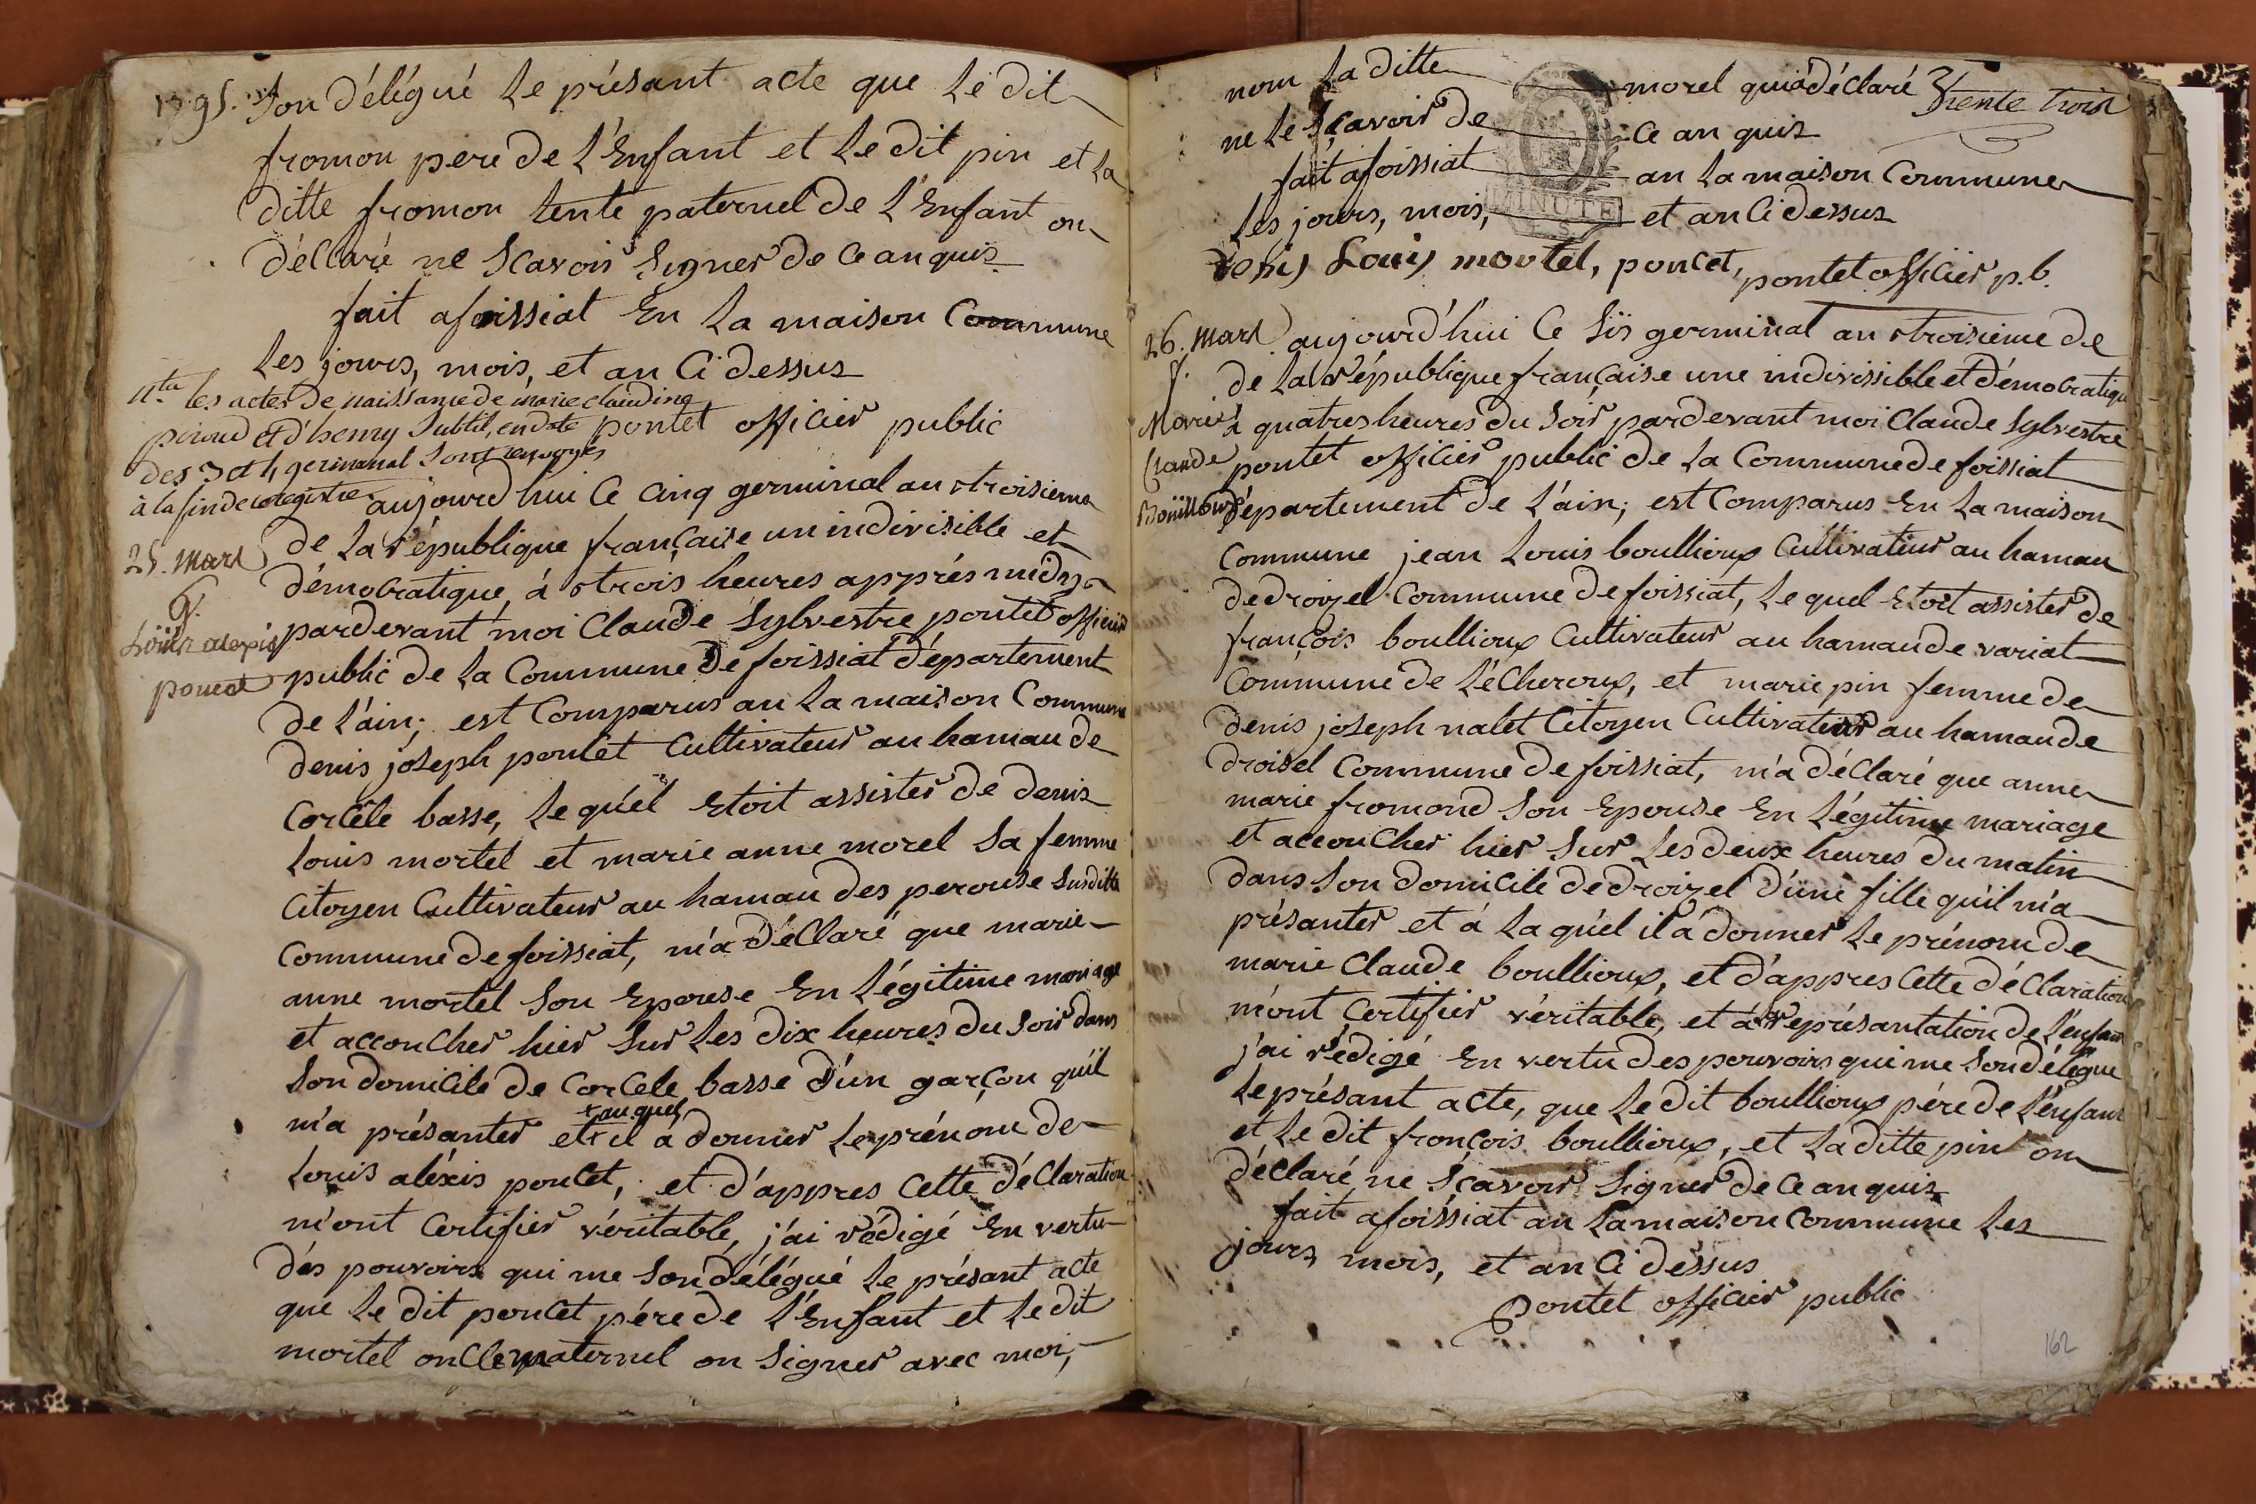 1795. Son délégué le présant acte que le dit
fromon pere de l'Enfant et le dit pin et la
ditte fromon tente paternel de l'Enfant on
déclaré ne Scavoir Signer de ce anquis
fait afoissiat En la maison Commune
les jours, mois, et an Ci dessus
nta les actes de naissance de marie claudine
piroud et d'henry Subtil, en date pontet officier public
des 3 et 4 germinal Sont renvoyés
à la fin de ce registre
aujourd'hui Ce cinq germinal an stroisieme
de la république française un indivisible et
25. mars
démocratique, á strois heures apprés midy
g.
pardevant moi Claude Sylvestre pontet officier
Löuis alexis
public de la Commune de foissiat département
poncet
de l'ain; est Comparus an la maison Commune
denis joseph poncet Cultivateur au hamau de
Corcele basse, le quéil Etoit assister de denis
Louis mortel et marie anne morel Sa femme
Citoyen Cultivateur au hamau des perouse Susditte
Commune de foissiat, m'a déclaré que marie
anne mortel Son Epouse En légitime mariage
et accoucher hier Sur les dix heures du Soir dans
Son domicile de Corcele basse d'un garçon qu'il
m'a présanter et + il a donner le prénom de
+ au quel
Louis aléxis poncet, et d'appres cette déclaration
m'ont certifier véritable, j'ai rédigé En vertu
dés pouvoirs qui me Son délégué le présant acte
que le dit poncet pére de l'Enfant et le dit
mortel oncle maternel on Signer avec moi,
nom la ditte morel qui a déclaré
trente trois
ne le Sçavoir de Ce an quis
fait afoissiat an la maison Commune
les jours, mois, et an Ci dessus
MINUTE
Denis Louis mortel, poncet, pontet officier p.b.
26. mars
aujourd'hui Ce Sis germinal an stroisieme de
f.
de la république française une indivissible et démocratique
Marie
à quatres heures du Soir pardevant moi Claude Sylvestre
Claude
pontet officier public de la Commune de foissiat
Boüilloux
département de l'ain; est Comparus En la maison
Commune jean Louis boullioux Cultivateur au hamau
de droizel Commune de foissiat, le quel Etoit assister de
françois boullioux Cultivateur au hamau de variat
Commune de léCheroux, et marie pin femme de
denis joseph nalet Citoyen Cultivateur au hamau de
droisel Commune de foissiat, m'a déclaré que anne
marie fromond Son Epouse En légitime mariage
et accoucher hier Sur les deux heures du matin
dans Son domicile de droizel d'une fille qu'il m'a
présanter et á la quél il á donner le prénom de
marie Claude boullioux, et d'appres cette déclaration
m'ont certifier véritable, et á représantation de l'enfant
j'ai rédigé En vertu des pouvoirs qui me Son délégué
le présant acte, que le dit boullioux pére de l'énfant
et le dit françois boullioux, et la ditte pin on
déclaré ne Sçavoir Signer de ce anquis
fait afoissiat an la maison Commune les
jours mois, et an Ci déssus
pontet officier public
162